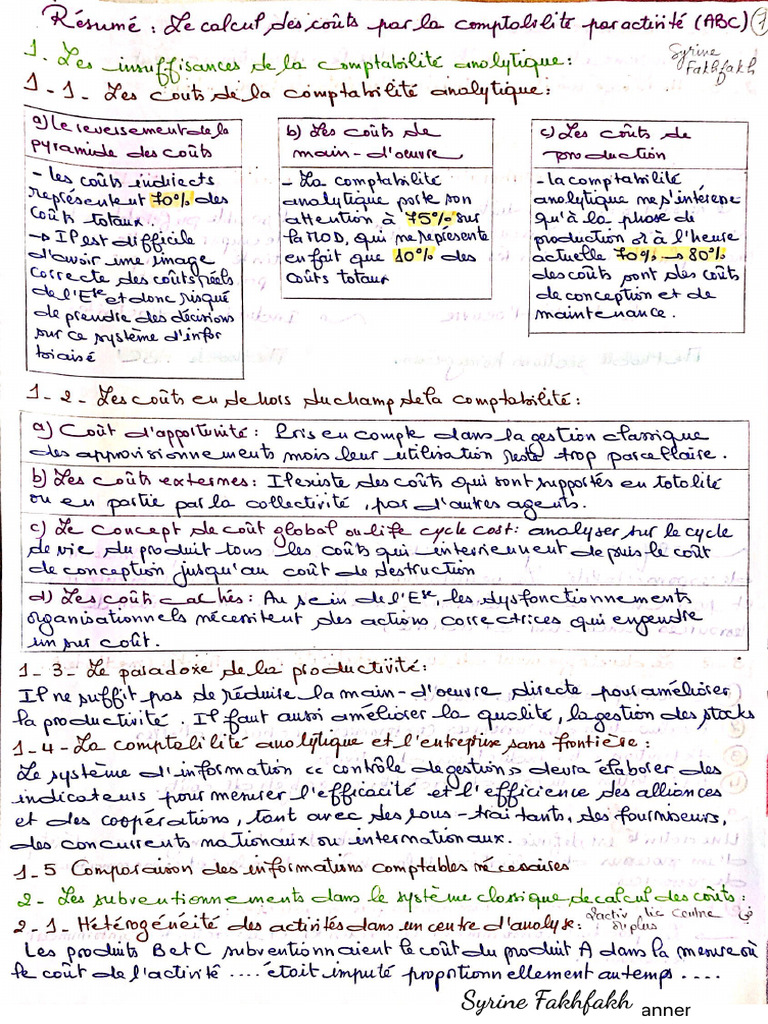 Résumé : Le calcul des coûts par la comptabilité par activité (ABC) 1
Syrine
Fakhfakh
1. Les insuffisances de la comptabilité analytique :
1-1- Les couts de la comptabilité analytique :
a) Le reversement de la
pyramide des coûts
- les coûts indirects
représentent 70% des
coûts totaux.
→ Il est difficile
d'avoir une image
correcte des coûts réels
de l'Ese et donc risque
de prendre des décisions
sur ce système d'infor
biaisé
b) Les coûts de
main-d'oeuvre
- La comptabilité
analytique porte son
attention à 75% sur
la MOD, qui ne représente
en fait que 10% des
coûts totaux
c) Les coûts de
production
- la comptabilité
analytique ne s'intéresse
qu'à la phase de
production or à l'heure
actuelle 70% → 80%
des coûts sont des coûts
de conception et de
maintenance.
1-2- Les coûts en dehors du champ de la comptabilité :
a) Coût d'opportunité : Pris en compte dans la gestion classique
des approvisionnements mais leur utilisation reste trop parcellaire.
b) Les coûts externes : Il existe des coûts qui sont supportés en totalité
ou en partie par la collectivité, par d'autres agents.
c) Le concept de coût global ou life cycle cost : analyser sur le cycle
de vie du produit tous les coûts qui interviennent depuis le coût
de conception jusqu'au coût de destruction
d) Les coûts cachés : Au sein de l'Ese, les dysfonctionnements
organisationnels nécessitent des actions correctrices qui engendre
un sur coût.
1-3- Le paradoxe de la productivité :
Il ne suffit pas de réduire la main-d'oeuvre directe pour améliorer
la productivité. Il faut aussi améliorer la qualité, la gestion des stocks
1-4- La comptabilité analytique et l'entreprise sans frontière :
Le système d'information « contrôle de gestion » devra élaborer des
indicateurs pour mesurer l'efficacité et l'efficience des alliances
et des coopérations, tant avec des sous-traitants, des fournisseurs,
des concurrents nationaux ou internationaux.
1-5 Comparaison des informations comptables nécessaires
2- Les subventionnements dans le système classique de calcul des coûts :
2-1- Hétérogénéité des activités dans un centre d'analyse :
Les produits B et C subventionnaient le coût du produit A dans la mesure où
le coût de l'activité .... était imputé proportionnellement au temps ....
Syrine Fakhfakh
anner